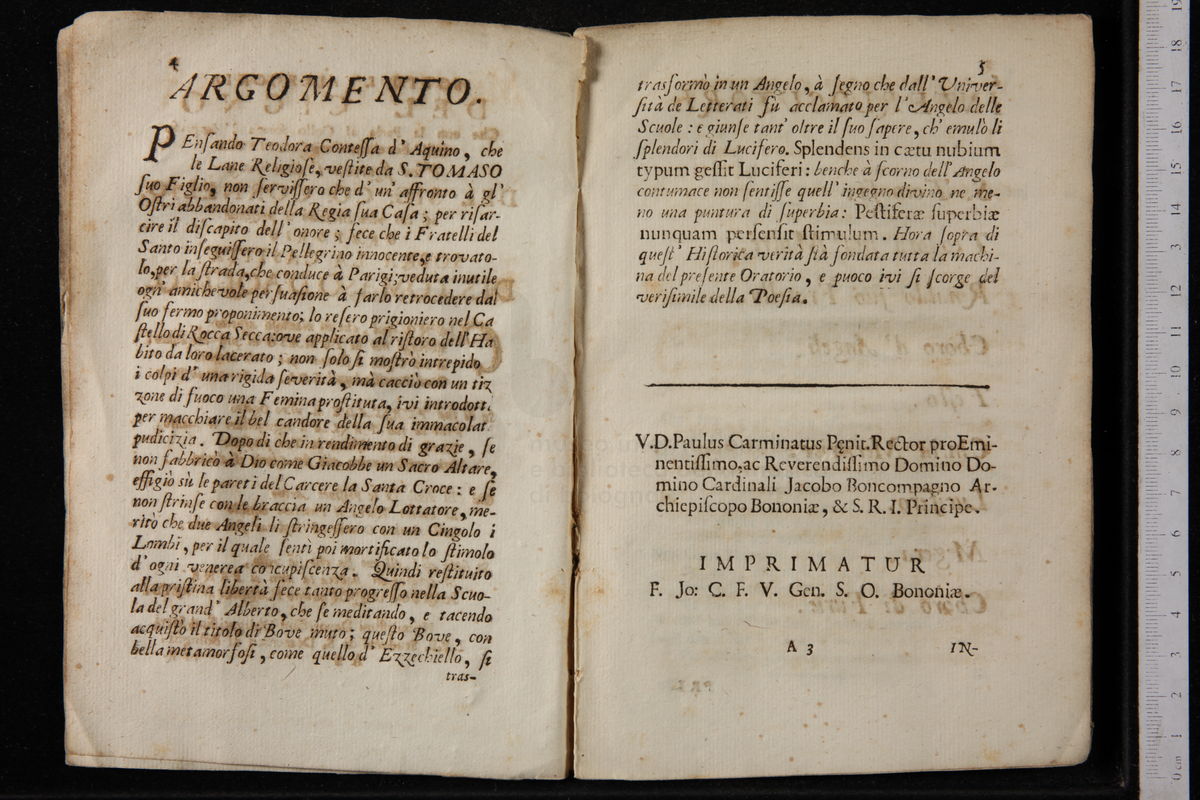 4
ARGOMENTO.
PEnſando Teodora Conteſſa d' Aquino, che
le Lane Religioſe, veſtite da S. TOMASO
ſuo Figlio, non ſerviſſero che d' un' affronto à gl'
Oſtri abbandonati della Regia ſua Caſa; per riſar-
cire il diſcapito dell' onore; fece che i Fratelli del
Santo inſeguiſſero il Pellegrino innocente,e trovato-
lo,per la ſtrada,che conduce à Parigi;veduta inutile
ogn' amichevole perſuaſione à farlo retrocedere dal
ſuo fermo proponimento; lo reſero prigioniero nel Ca
ſtello di Rocca Secca:ove applicato al riſtoro dell' Ha
bito da loro lacerato; non ſolo ſi moſtrò intrepido
i colpi d' una rigida ſeverità, mà cacciò con un tiz
zone di fuoco una Femina proſtituta, ivi introdott.
per macchiare il bel candore della ſua immacolat
pudicizia. Dopo di che in rendimento di grazie, ſe
non fabbricò à Dio come Giacobbe un Sacro Altare,
effigiò sù le pareti del Carcere la Santa Croce: e ſe
non ſtrinſe con le braccia un Angelo Lottatore, me-
ritò che due Angeli li ſtringeſſero con un Cingolo i
Lombi, per il quale ſentì poi mortificato lo ſtimolo
d' ogni venerea concupiſcenza. Quindi reſtituito
alla priſtina libertà fece tanto progreſſo nella Scuo-
la del grand' Alberto, che ſe meditando, e tacendo
acquiſtò il titolo di Bove muto; queſto Bove, con
bella metamorfoſi, come quello d' Ezzechiello, ſi
tras-
5
trasformò in un Angelo, à ſegno che dall' Univer-
ſità de Letterati fù acclamato per l' Angelo delle
Scuole: e giunſe tant' oltre il ſuo ſapere, ch' emulò li
ſplendori di Lucifero. Splendens in cætu nubium
typum geſſit Luciferi: benche à ſcorno dell' Angelo
contumace non ſentiſſe quell' ingegno divino ne me-
no una puntura di ſuperbia: Peſtiferæ ſuperbiæ
nunquam perſensit ſtimulum. Hora ſopra di
queſt' Hiſtorica verità ſtà fondata tutta la machi-
na del preſente Oratorio, e puoco ivi ſi ſcorge del
veriſimile della Poeſia.
V.D.Paulus Carminatus Pęnit.Rector pro Emi-
nentiſſimo,ac Reverendiſſimo Domino Do-
mino Cardinali Jacobo Boncompagno Ar-
chiepiſcopo Bononiæ, & S. R. I. Principe.
IMPRIMATUR
F. Jo: C. F. V. Gen. S. O. Bononiæ.
A 3
IN-
0 cm 1 2 3 4 5 6 7 8 9 10 11 12 13 14 15 16 17 18 19